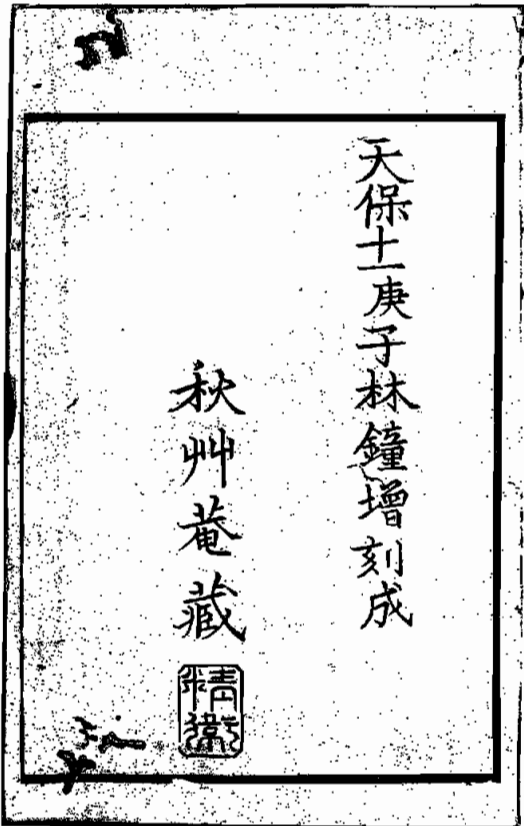 天保十一庚子林鐘增刻成
秋艸菴藏